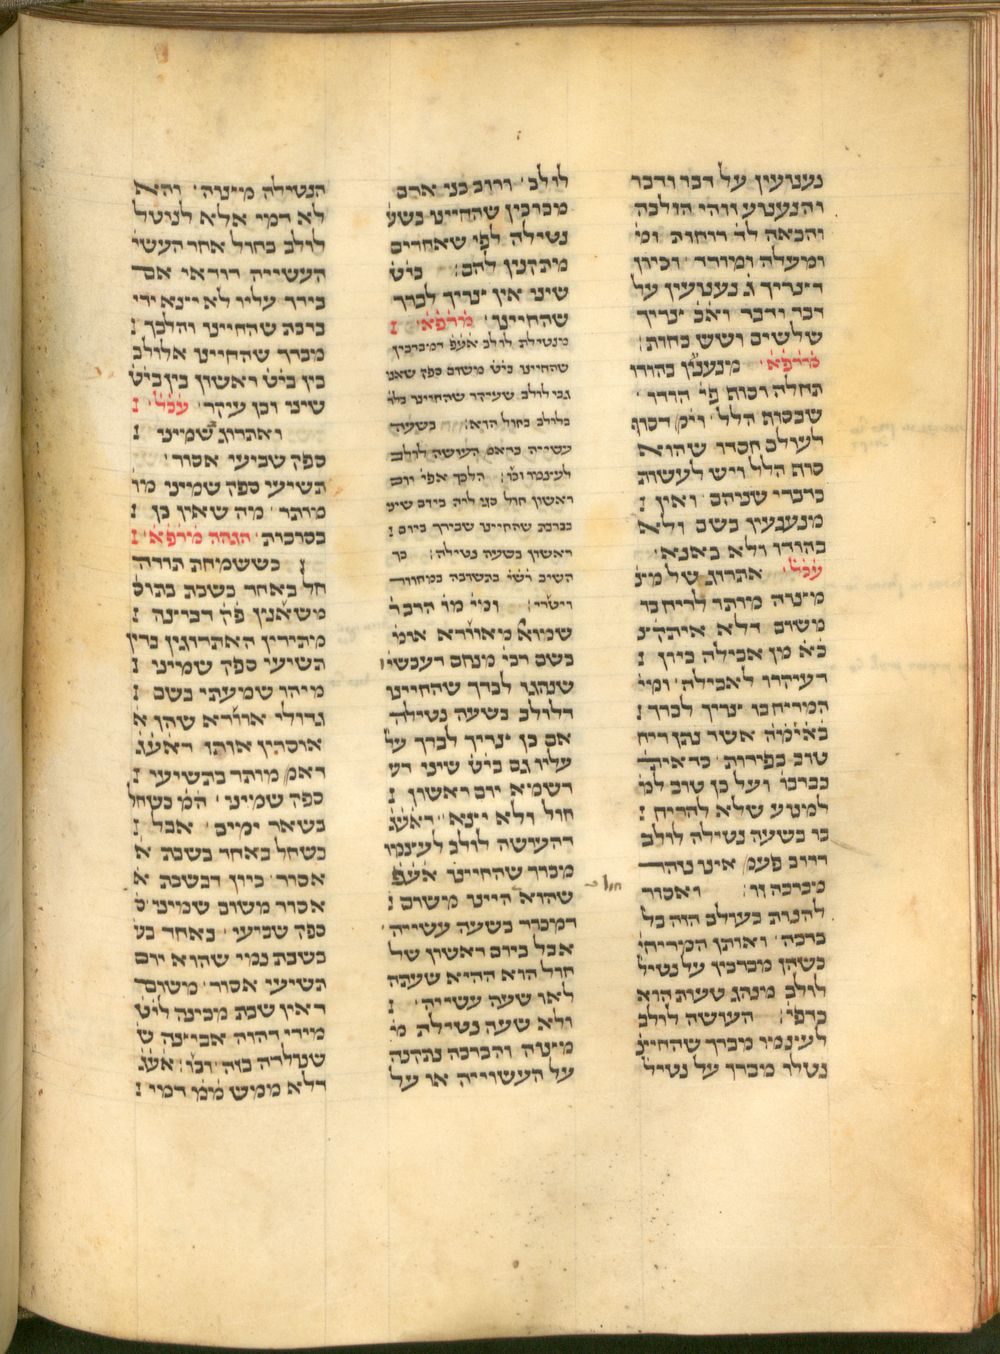 נענועין על דבר ודבר
והנענוע זהו הולכה
והבאה לד׳ רוחות ומ׳
ומעלה ומוריד׳ וכיון
דצריך ג׳ נענועין על
דבר ודבר ואכ׳ צריך
שלשים ושש כחות׃
מרדפא׳ מנענעין בהודו
תחלה וסוף פי׳ הדר׳
שבסוף הלל׳ ויש דסוף
לעולם חסדו שהוא
סוף הלל ויש לעשות
כדברי שניהם ואין נ
מנענעין בשם ולא
בהודו ולא באנא׳
עכל׳ אתרוג של מצ
מצוה מותר להריח בו
משום דלא איתקצ
כא מן אכילה כיון נ
דעיקרו לאכילה׳ ומי׳
המריח בו צריך לברך נ
באימה אשר נתן ריח
טוב בפירות׳ כדאית׳
בברכו׳ ועל כן טוב למ׳
למנוע שלא להריח נ
בו בשעה נטילה לולב
דרוב פעמ׳ אינו נזהר
מברכה זו׃ ואסור
להנות בעולם הזה בל׳
ברכה׳ ואותן המריחי׳
כשהן מברכין על נטיל׳
לולב מנהג שטות הוא
בדפי׳׃ העושה לולב
לעצמו מברך שהחיינ
נטלו מברך על נטיל׳
לולב׳ ורוב בני אדם
מברכין שהחיינו בשע׳
נטילה לפי שאחרים
מתקנין להם׃ ביט׳
שיני אין צריך לברך
שהחיינו׳ מרדפא׳ נ
מנטילת לולב אעפ׳ דמברכין
שהחיינו ביט׳ משום ספק שאני
גבי לולב שעיקר שהחיינו בלו׳
בלולב בחול הוא׃ בשעה
עשייה כדאמ׳ העושה לולב
לעצמו וכו׳׃ הלכך אפי׳ יום
ראשון חול סגי ליה ביום שיני
בברכת שהחיינו שבירך ביום נ
ראשון בשעה נטילה׃ כך
השיב רש׳י בתשובה במחזור
ויטרי׃ ומי׳ מו׳ הדבר
שמוא׳ מאוירא אומ׳
בשם רבי׳ מנחם דעכשי׳
שנהגו לברך שהחיינו
דלולב בשעה נטילה
אם כן צריך לברך על׳
עליו גם ביט׳ שיני דע׳
דשמא יום ראשון נ
חול ולא יצא׳ דאעג׳
דהעושה לולב לעצמו
מברך שהחיינו אעפ׳
שהוא היינו משום נ
דמברך בשעה עשייה׳
אבל ביום ראשון של
חול הוא ההיא שעתה
לאו שעה עשייה׳ נ
ולא שעה נטילת מ׳
מצוה והברכה נתקנה
על העשוייה או על
הנטילה מצוה׳ והא
לא דמי אלא לנוטל
לולב בחול אחר העשי׳
העשייה דודאי אם
בירך עליו לא יצא ידי
ברכת שהחיינו והלכך נ
מברך שהחיינו אלולב
בין ביט׳ ראשון בין ביט׳
שיני וכן עיקר׳ עכל׳ נ
ואתרוג שמיני נ
ספק שביעי אסור׳
תשיעי ספק שמיני מו׳
מותר׳ מה שאין כן נ
בסוכות׳ הגהה מרדפא׳ נ
נ כששמחת תורה
חל באחר בשבת בתול׳
משאנץ פק׳ דביצה נ
מתירין האתרוגין בדין
תשיעי ספק שמיני נ
מיהו שמעתי בשם נ
גדולי אויירא שהן א
אוסרין אותו דאעג׳
דאמ׳ מותר בתשיעי נ
ספק שמיני׳ המ׳ כשחל
בשאר ימים׳ אבל נ
כשחל באחד בשבת א
אסור׳ כיון דבשבת א
אסור משום שמיני ס׳
ספק שביעי׳ באחד בש׳
בשבת נמי שהוא יום
תשיעי אסור׳ משום
דאין שבת מכינה ליט׳
מידי דהוה אביצה ש
שנולדה בזה׳ וכו׳׃ אעג׳
דלא ממש ממ׳ דמי נ